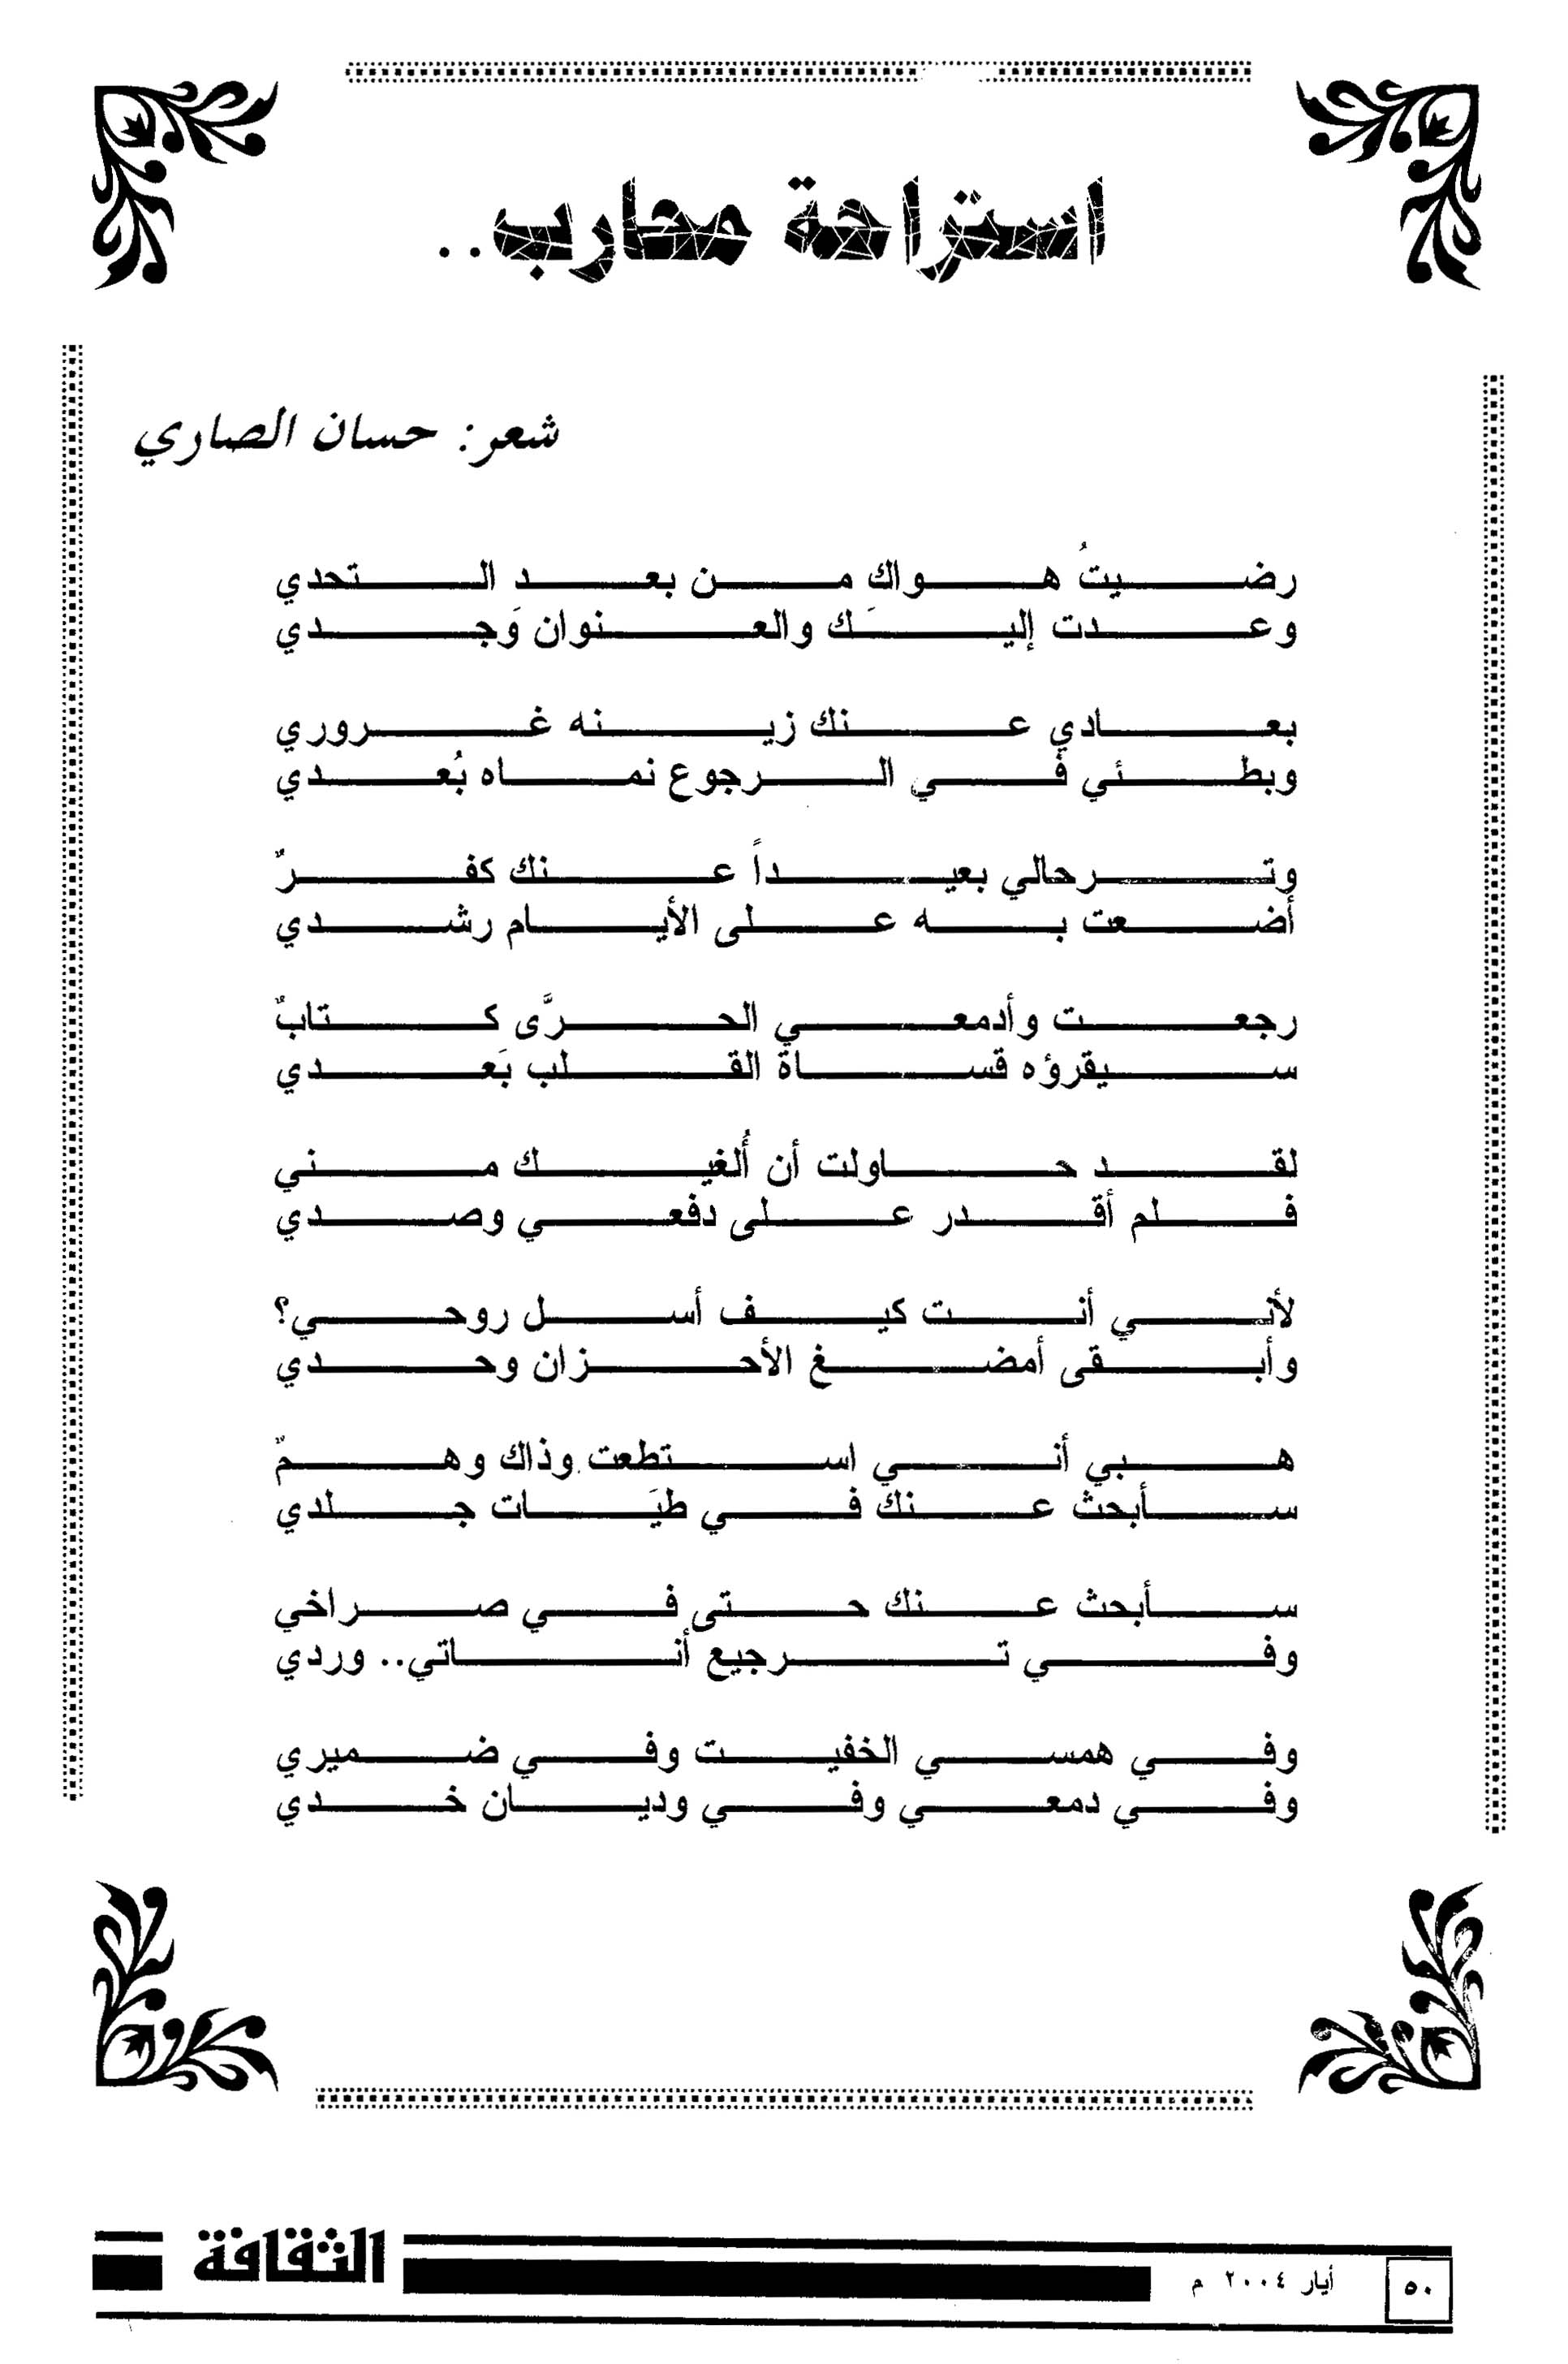 استراحة محارب..
شعر: حسان الصاري
رضيتُ هواك من بعد التحدي
وعدت إليَك والعنوان وَجدي
بعادي عنك زينه غروري
وبطئي في الرجوع نماه بُعدي
وترحالي بعيداً عنك كفرٌ
أضعت به على الأيام رشدي
رجعت وأدمعي الحرَّى كتابٌ
سيقرؤه قساة القلب بَعدي
لقد حاولت أن أُلغيك مني
فلم أقدر على دفعي وصدي
لأني أنت كيف أسل روحي؟
وأبقى أمضغ الأحزان وحدي
هبي أني استطعت وذاك وهمٌ
سأبحث عنك في طيَات جلدي
سأبحث عنك حتى في صراخي
وفي ترجيع أناتي.. وردي
وفي همسي الخفيت وفي ضميري
وفي دمعي وفي وديان خدي
٥٠ أيار ٢٠٠٤ م الثقافة